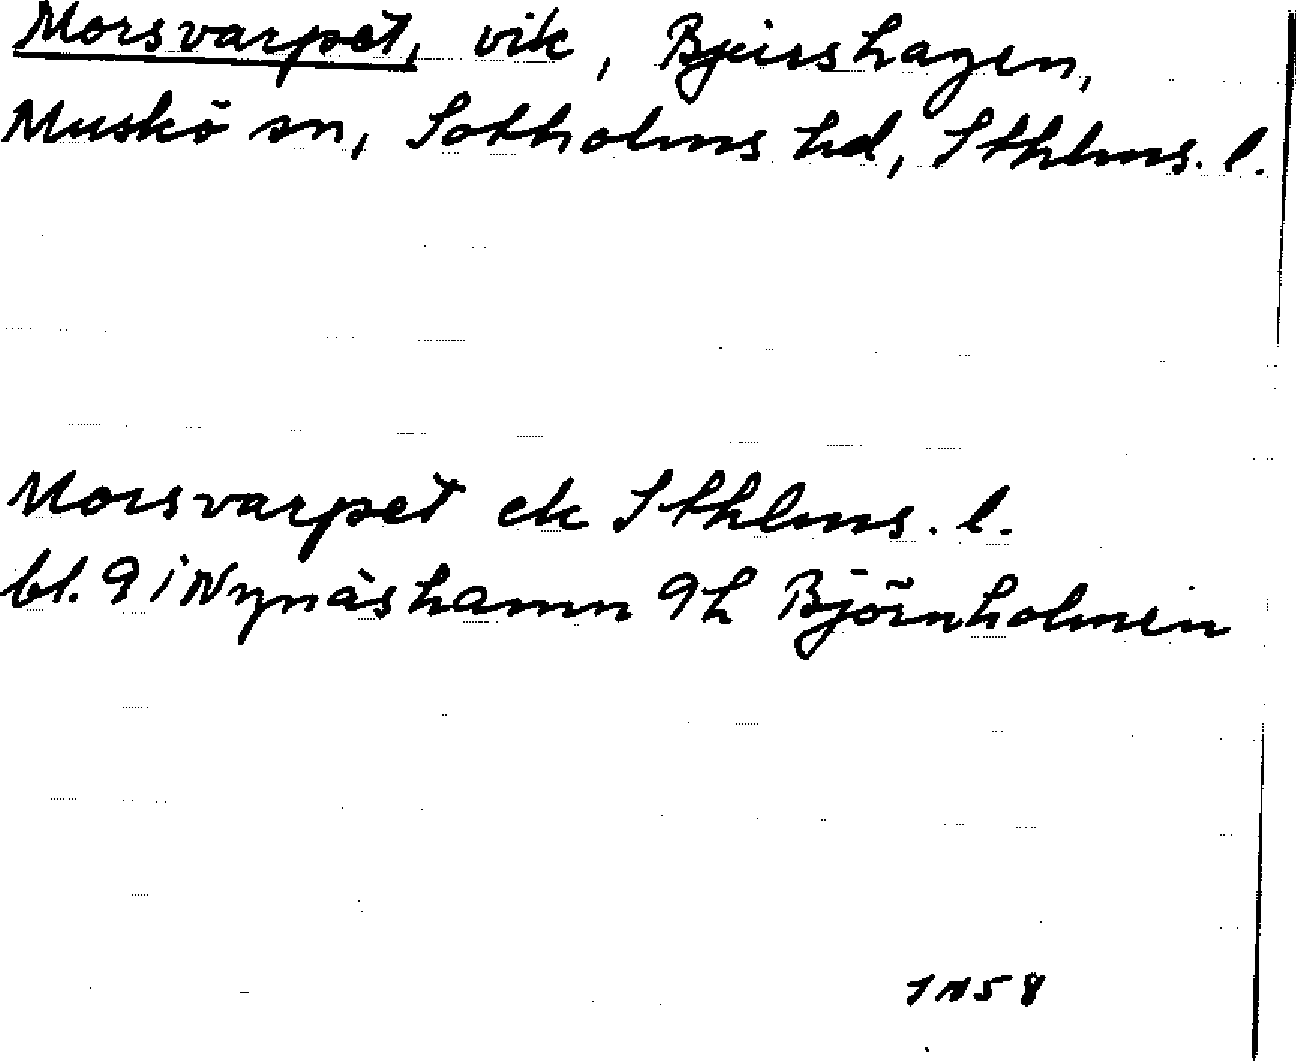 Morsvarpet, vik, Bjurshagen,
Muskö sn, Sotholms hd, Sthlms. l.
Morsvarpet ek Sthlms. l.
bl. 9 i Nynäshamn 9h Björnholmen